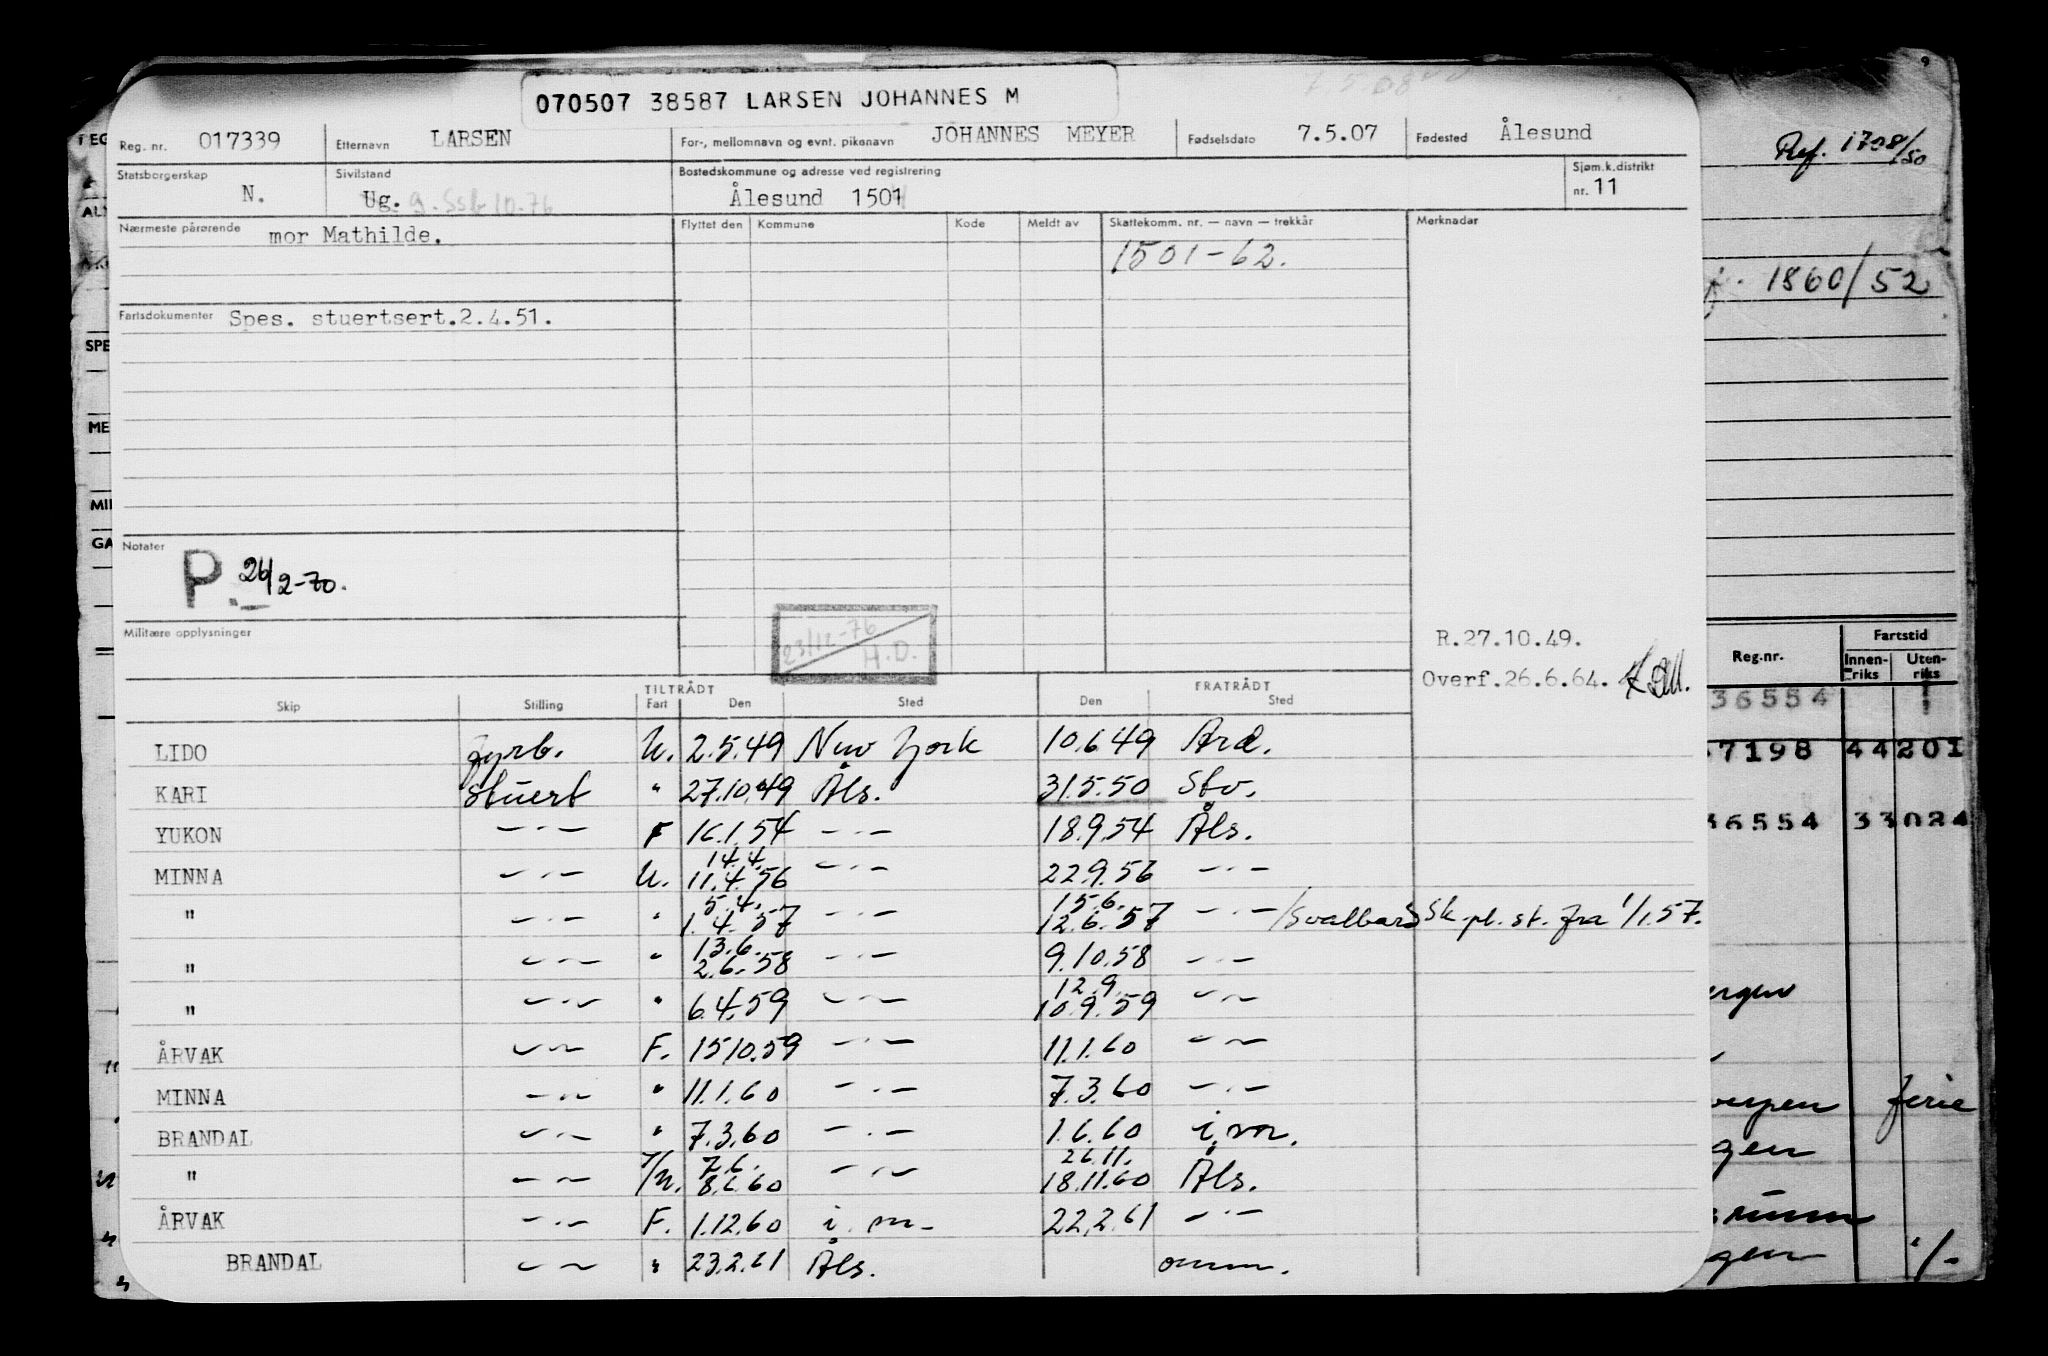 7.5.08
070507 38587 LARSEN JOHANNES M
Reg. nr. 017339 Etternavn LARSEN For-, mellomnavn og evnt. pikenavn JOHANNES MEYER Fødselsdato 7.5.07 Fødested Ålesund
Statsborgerskap N. Sivilstand Ug. g. Ssb 10.76 Bostedskommune og adresse ved registrering Ålesund 1501 Sjøm.k.distrikt nr. 11
Nærmeste pårørende mor Mathilde. Flyttet den Kommune Kode Meldt av Skattekomm. nr. — navn — trekkår Merknader
1501-62.
Fartsdokumenter Spes. stuertsert.2.4.51.
Notater
P 26/2-70.
Militære opplysninger
23/12-76 H.D.
R.27.10.49.
Overf.26.6.64.
TILTRÅDT FRATRÅDT
Skip Stilling Fart Den Sted Den Sted
LIDO fyrb. U. 2.5.49 New York 10.6.49 Ard.
KARI Stuert " 27.10.49 Åls. 31.5.50 Stv.
YUKON —"— F 16.1.54 —"— 18.9.54 Åls.
14.4.
MINNA —"— U. 11.4.56 —"— 22.9.56 —"—
5.4. 15.6.
" —"— " 1.4.57 —"— 12.6.57 —"— /Svalbard Sk.pl.st. fra 1/1.57.
13.6.
" —"— " 2.6.58 —"— 9.10.58 —"—
12.9.
" —"— " 6.4.59 —"— 10.9.59 —"—
ÅRVAK —"— F. 15.10.59 —"— 11.1.60 —"—
MINNA —"— " 11.1.60 —"— 7.3.60 —"—
BRANDAL —"— " 7.3.60 —"— 1.6.60 i.m.
7.6. 26.11.
" —"— F/U. 8.6.60 —"— 18.11.60 Åls.
ÅRVAK —"— F. 1.12.60 i.m. 22.2.61 —"—
BRANDAL —"— " 23.2.61 Åls. omm.
Ref. 1708/50
1860/52
SPE
ME
MIL
GA
Reg.nr. Fartstid
Innen-riks Uten-riks
36554
7198 44 201
36554 33 024
ferie
gen
gen